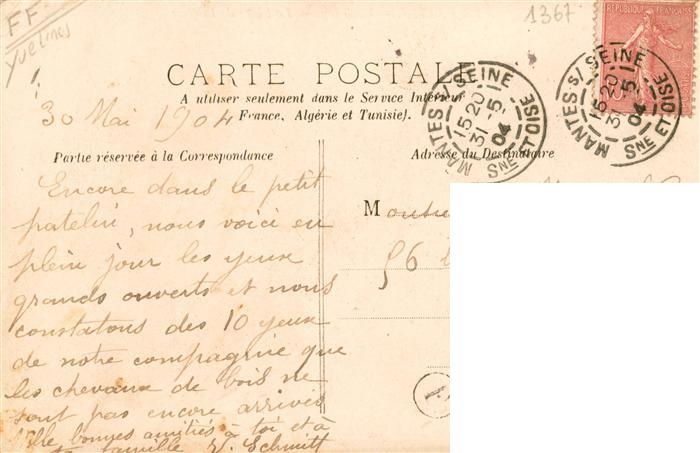 FF
Yvelines
1367
REPUBLIQUE FRANÇAISE
MANTES-S/SEINE
15 20
31 5
04
SNE ET OISE
MANTES-S/SEINE
15 20
31 5
04
SNE ET OISE
CARTE POSTALE
A utiliser seulement dans le Service Intérieur
France, Algérie et Tunisie).
30 Mai 1904
Partie réservée à la Correspondance
Adresse du Destinataire
Encore dans le petit
patelin, nous voici en
plein jour les yeux
grands ouverts et nous
constatons des 10 yeux
de notre compagnie que
les chevaux de bois ne
sont pas encore arrivés
Mille bonnes amitiés à toi et à
ta famille V. Schmitt
M
56